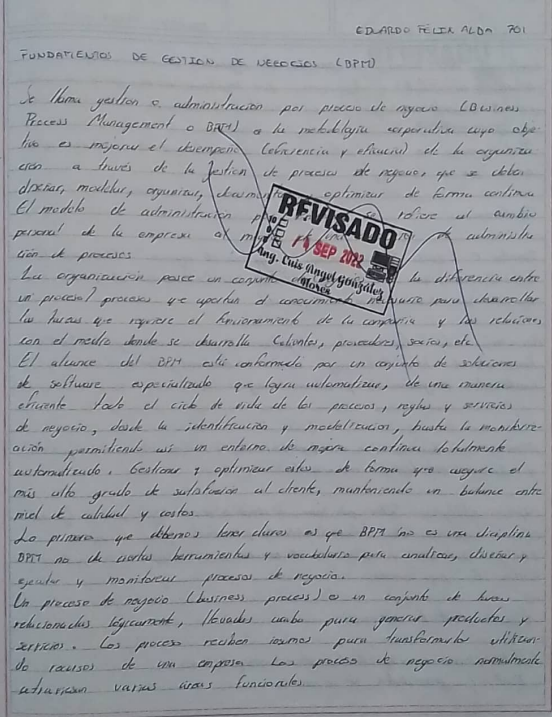 EDUARDO FELIX ALDA 701
FUNDAMENTOS DE GESTION DE NEGOCIOS (BPM)
Se llama gestion o administracion por proceso de negocio (Business
Process Management o BPM) a la metodologia corporativa cuyo obje-
tivo es mejorar el desempeño (eficiencia y eficacia) de la organiza
ción a través de la gestion de procesos de negocio, que se deben
diseñar, modelar, organizar, optimizar de forma continua
El modelo de administracion se refiere al cambio
personal de la empresa al de administra
ción de procesos
La organización posee un conjunto la diferencia entre
un proceso? procesos que aportan el conocimiento para desarrollar
las tareas que requiere el funcionamiento de la compañia y las relaciones
con el medio donde se desarrolla Clientes, proveedores, socios, etc
El alcance del BPM está conformado por un conjunto de soluciones
de software especializado que logra automatizar, de una manera
eficiente todo el ciclo de vida de los procesos, reglas y servicios
de negocio, desde la identificacion y modelizacion, hasta la monitore-
ación permitiendo asi un entorno de mejora continua totalmente
automatizado. Gestionar y optimizar estos de forma que asegure el
más alto grado de satisfaccion al cliente, manteniendo un balance entre
nivel de calidad y costos.
Lo primero que debemos tener claros es que BPM no es una diciplina
BPM no de ciertas herramientas y vocabulario para analizar, diseñar y
ejecutar y monitorear procesos de negocio.
Un proceso de negocio (business process) es un conjunto de tareas
relacionadas lógicamente, llevadas acabo para generar productos y
servicios. Los proceso reciben insumos para transformarlo utilizan-
do recursos de una empresa Los proceso de negocio normalmente
atraviesan varias áreas funcionales.
REVISADO
SEP 2022
Ing. Luis Angel González
Flores